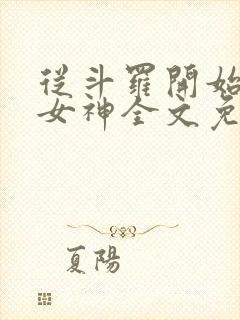 從斗羅開始
女神全文免
夏陽